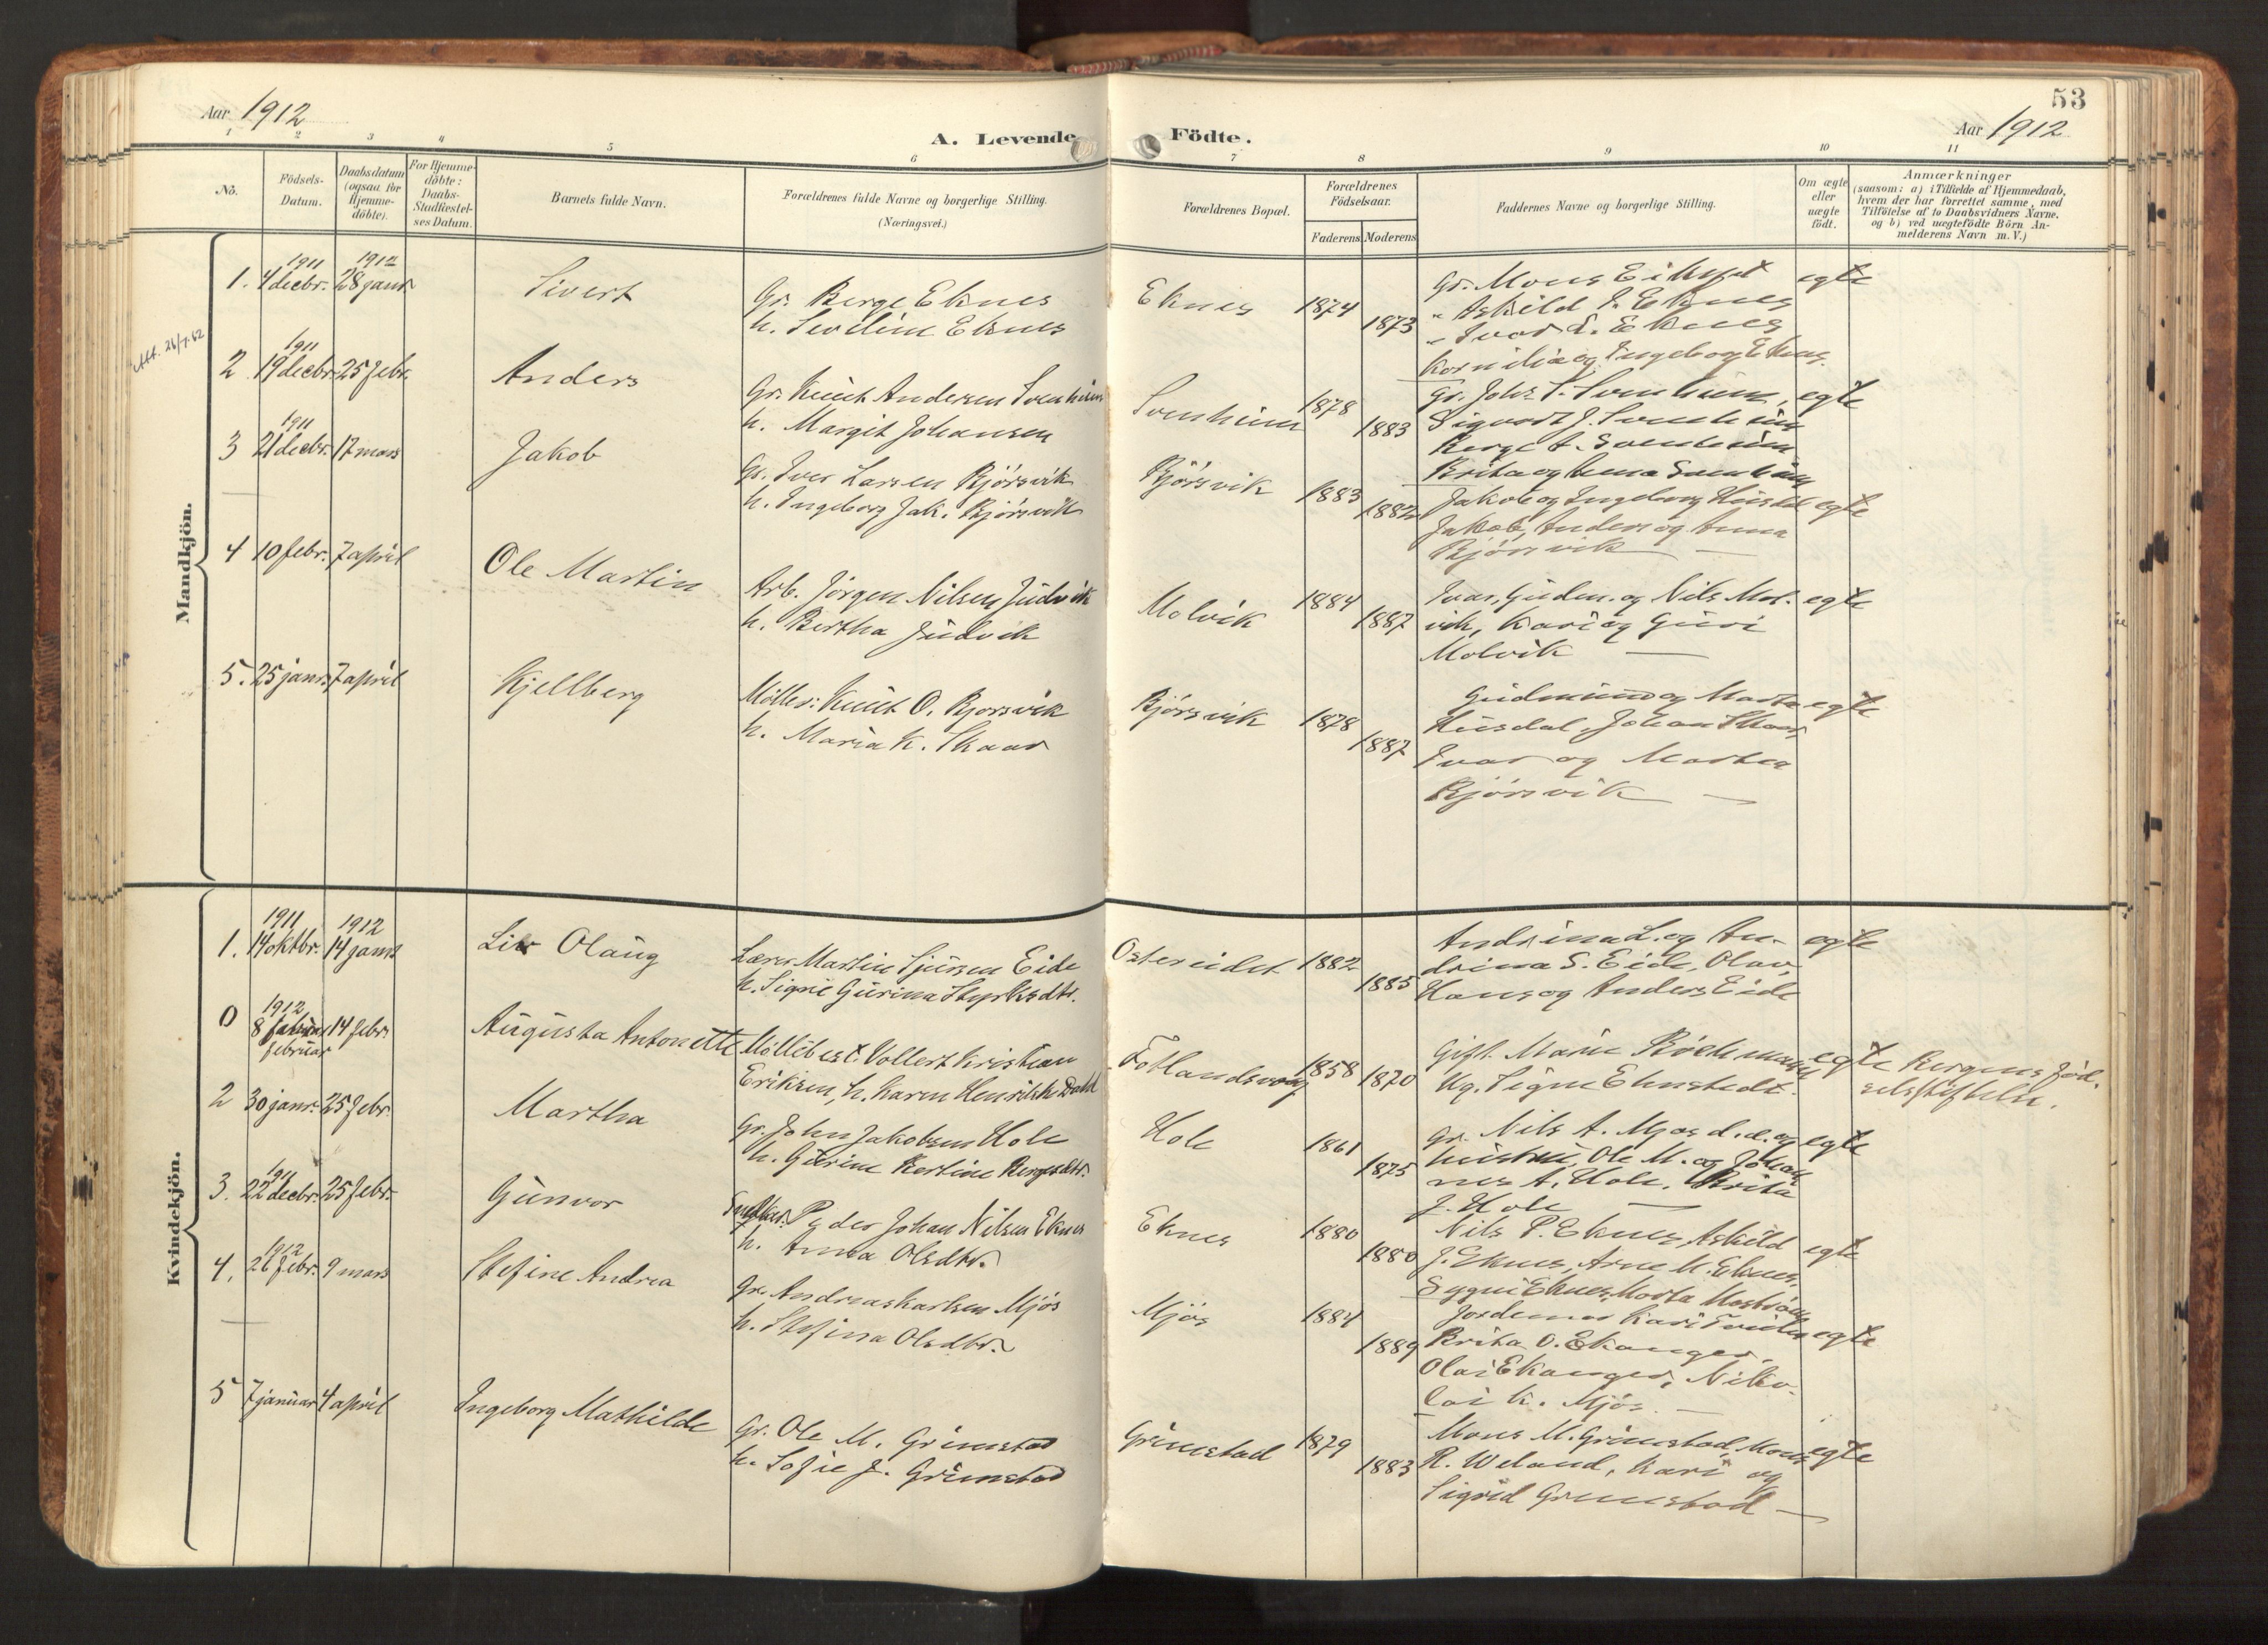 53
Aar 1912
A. Levende Födte.
Aar 1912
1 2 3 4 5 6 7 8 9 10 11
No.
Födsels-Datum.
Daabsdatum (ogsaa for Hjemme-döbte).
For Hjemme-döbte: Daabs-Stadfæstel-ses Datum.
Barnets fulde Navn.
Forældrenes fulde Navne og borgerlige Stilling.
(Næringsvei.)
Forældrenes Bopæl.
Forældrenes Födselsaar.
Faderens Moderens
Faddernes Navne og borgerlige Stilling.
Om ægte eller uægte födt.
Anmærkninger
(saasom: a) i Tilfælde af Hjemmedaab, hvem der har forrettet samme, med Tilföielse af to Daabsvidners Navne. og b) ved uægtefödte Börn An-melderens Navn m. V.)
Mandkjön.
1. 1911 4 decbr. 1912 28 janr Sivert
Gr. Berge Eknes
h. Seveline Eknes
Eknes 1874 1873
Gr. Mons Eikset
" Askild J. Eknes
" Ivar L. Eknes
Kornilia og Ingeborg Eknes
egte
Att. 26/7.62
2 1911 19 decbr. 25 febr. Anders
Gr. Knut Andersen Svenheim
h. Margit Johansen
Svenheim 1878 1883
Gr. Johs S. Svenheim,
Sigvart J. Svenheim
Berge A. Svenheim
Brita og Anna Svenheim
egte
3 1911 21 decbr. 17 mars Jakob
Gr. Iver Larsen Bjórsvik
h. Ingeborg Jak. Bjórsvik
Bjórsvik 1883 1882
Jakob og Ingeborg Husdal
Jakob, Anders og Anna
Bjórsvik
egte
4 10 febr. 7 april Ole Martin
Arb. Jörgen Nilsen Judvik
h. Bertha Judvik
Molvik 1884 1887
Ivar, Gudm. og Nils Mol-
vik, Kari og Guri
Molvik
egte
5. 25 janr. 7 april Kjellberg
Möller: Knut O. Bjorsvik
h. Maria K. Skaar
Bjórsvik 1878 1887
Gudmund og Marta
Husdal, Johan Skaar,
Ivar og Marta
Bjórsvik
egte
Kvindekjön.
1. 1911 14 oktbr. 1912 14 janr Liv Olaug
Lærer Martin Sjursen Eide
h. Signe Gurina Styrksdtr.
Ostereidet 1882 1885
Andrina L. og An-
drina S. Eide, Olav,
Hans og Anders Eide
egte
0 1912 8 februar 14 febr. Augusta Antonette
Möllebest. Vollert Kristian
Eriksen, h. Karen Henrikke Dahl
Fotlandsvaag 1858 1870
Gift. Marie Böckmann
Kg. Signe Ehnstedt.
egte
Bergens Fød-
selsstiftelse.
2 30 janr. 25 febr. Martha
Gr. John Jakobsen Hole
h. Gurine Bertine Bergesdtr.
Hole 1861 1875
Gr. Nils A. Mjos d.e. og
hustru, Ole M. og Johan
nes A. Hole, Brita
J. Hole
egte
3. 1911 22 decbr. 25 febr. Gunvor
Peder Johan Nilsen Eknes
h. Anna Olsdtr.
Eknes 1880 1880
Nils P. Eknes, Askild
J. Eknes, Arne M. Eknes,
egte
4. 1912 26 febr. 9 mars Stefine Andrea
Gr. Andreas Karlsen Mjós
h. Stefina Olsdtr.
Mjós 1884 1889
Jordemor Kari Tveiten
Brita O. Ekanger,
Olai Ekanger, Niko-
lai K. Mjós.
egte
5 7 januar 4 april Ingeborg Mathilde
Gr. Ole M. Grimstad
h. Sofie J. Grimstad
Grimstad 1879 1883
Mons M. Grimstad, Mons
R. Weland, Kari og
Sigrid Grimstad
egte